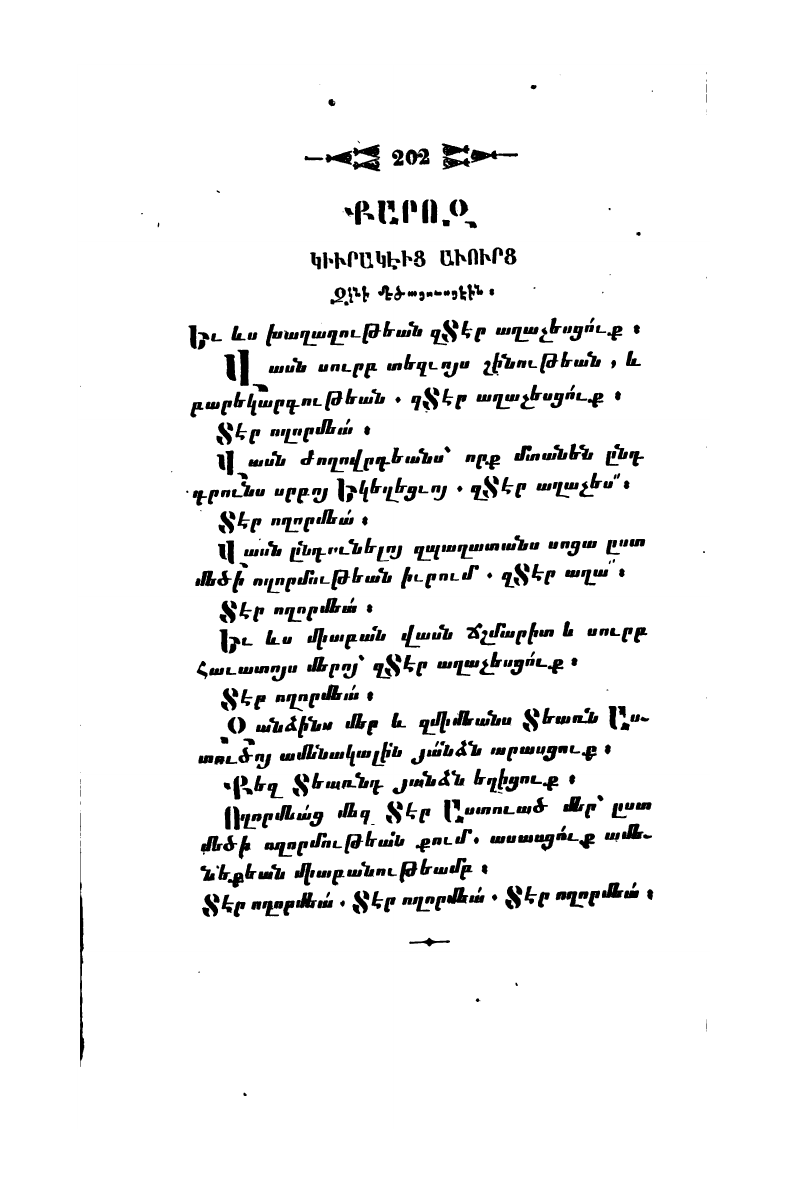 202
ՔԱՐՈԶ
ԿԻՒՐԱԿԷԻՑ ԱՒՈՒՐՑ
Եւ ևս խաղաղութեան զՏէր աղաչեսցո՛ւք ։
Վասն սուրբ տեղւոյս շինութեան , և
բարեկարգութեան . զՏէր աղաչեսցո՛ւք ։
Տէր ողորմեա՛ ։
Վասն Ժողովրդեանս՝ որք մտանեն ընդ
դրունս սրբոյ Եկեղեցւոյ . զՏէր աղաչես՛՛ ։
Տէր ողորմեա՛ ։
Վասն ընդունելոյ զպաղատանս սոցա ըստ
մեծի ողորմութեան իւրում . զՏէր աղա՛՛ ։
Տէր ողորմեա՛ ։
Եւ ևս միաբան վասն Ճշմարիտ և սուրբ
Հաւատոյս մերոյ՝ զՏէր աղաչեսցո՛ւք ։
Տէր ողորմեա՛ ։
Զանձինս մեր և զմիմեանս Տեառն Աս-
տուծոյ ամենակալին յա՛նձն արասցուք ։
Քեզ Տեառնդ յանձն եղիցուք ։
Ողորմեա՛ց մեզ Տէր Աստուած մեր՝ ըստ
մեծի ողորմութեան քում . ասասցո՛ւք ամե-
նեքեան միաբանութեամբ ։
Տէր ողորմեա՛ . Տէր ողորմեա՛ . Տէր ողորմեա՛ ։